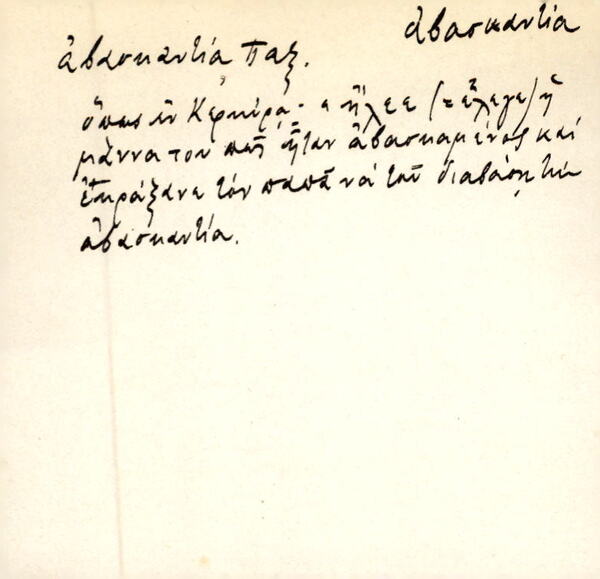 ἀβασκαντία
ἀβασκαντία Παξ.
ὅπως ἐν Κερκύρᾳ· ἤλεε (= ἔλεγε) ἡ
μάννα του πῆ ἦταν ἀβασκαμένος καὶ
ἐκράξανε τὸν παπᾶ νὰ τοῦ διαβάσῃ τὴν
ἀβασκαντία.